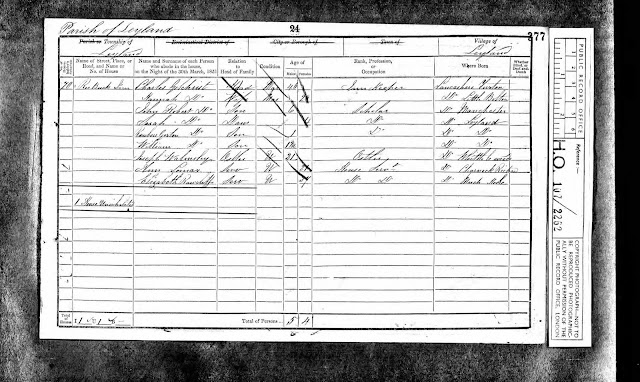 Parish of Leyland
24
377
Parish or Township of
Ecclesiastical District of
City or Borough of
Town of
Village of
Leyland
Leyland
Name of Street, Place, or Road, and Name or No. of House
Name and Surname of each Person who abode in the house, on the Night of the 30th March, 1851
Relation to Head of Family
Condition
Age of
Males
Females
Rank, Profession, or Occupation
Where Born
Whether Blind, or Deaf-and-Dumb
Charles Gilchrist Head Mar 48 Inn Keeper Lancashire
Hannah Do Wife Mar Do Little Bolton
John Robert Do Son Scholar Do Manchester
Sarah Do Do Do Leyland
Do Son Do Do Do
William Do Son Do Do
Joseph Walmsley U 21 Ostler Do
Ann Lomax Serv U House Servt Do Charnock Richard
Elizabeth Serv U Do Do Do Much Hoole
1 House Uninhabited
Total of Persons 5 4
PUBLIC RECORD OFFICE
1 2 3 4 5 6
Reference:-
H.O. 107/2262
COPYRIGHT PHOTOGRAPH-NOT TO
BE REPRODUCED PHOTOGRAPHIC-
ALLY WITHOUT PERMISSION OF THE
PUBLIC RECORD OFFICE, LONDON